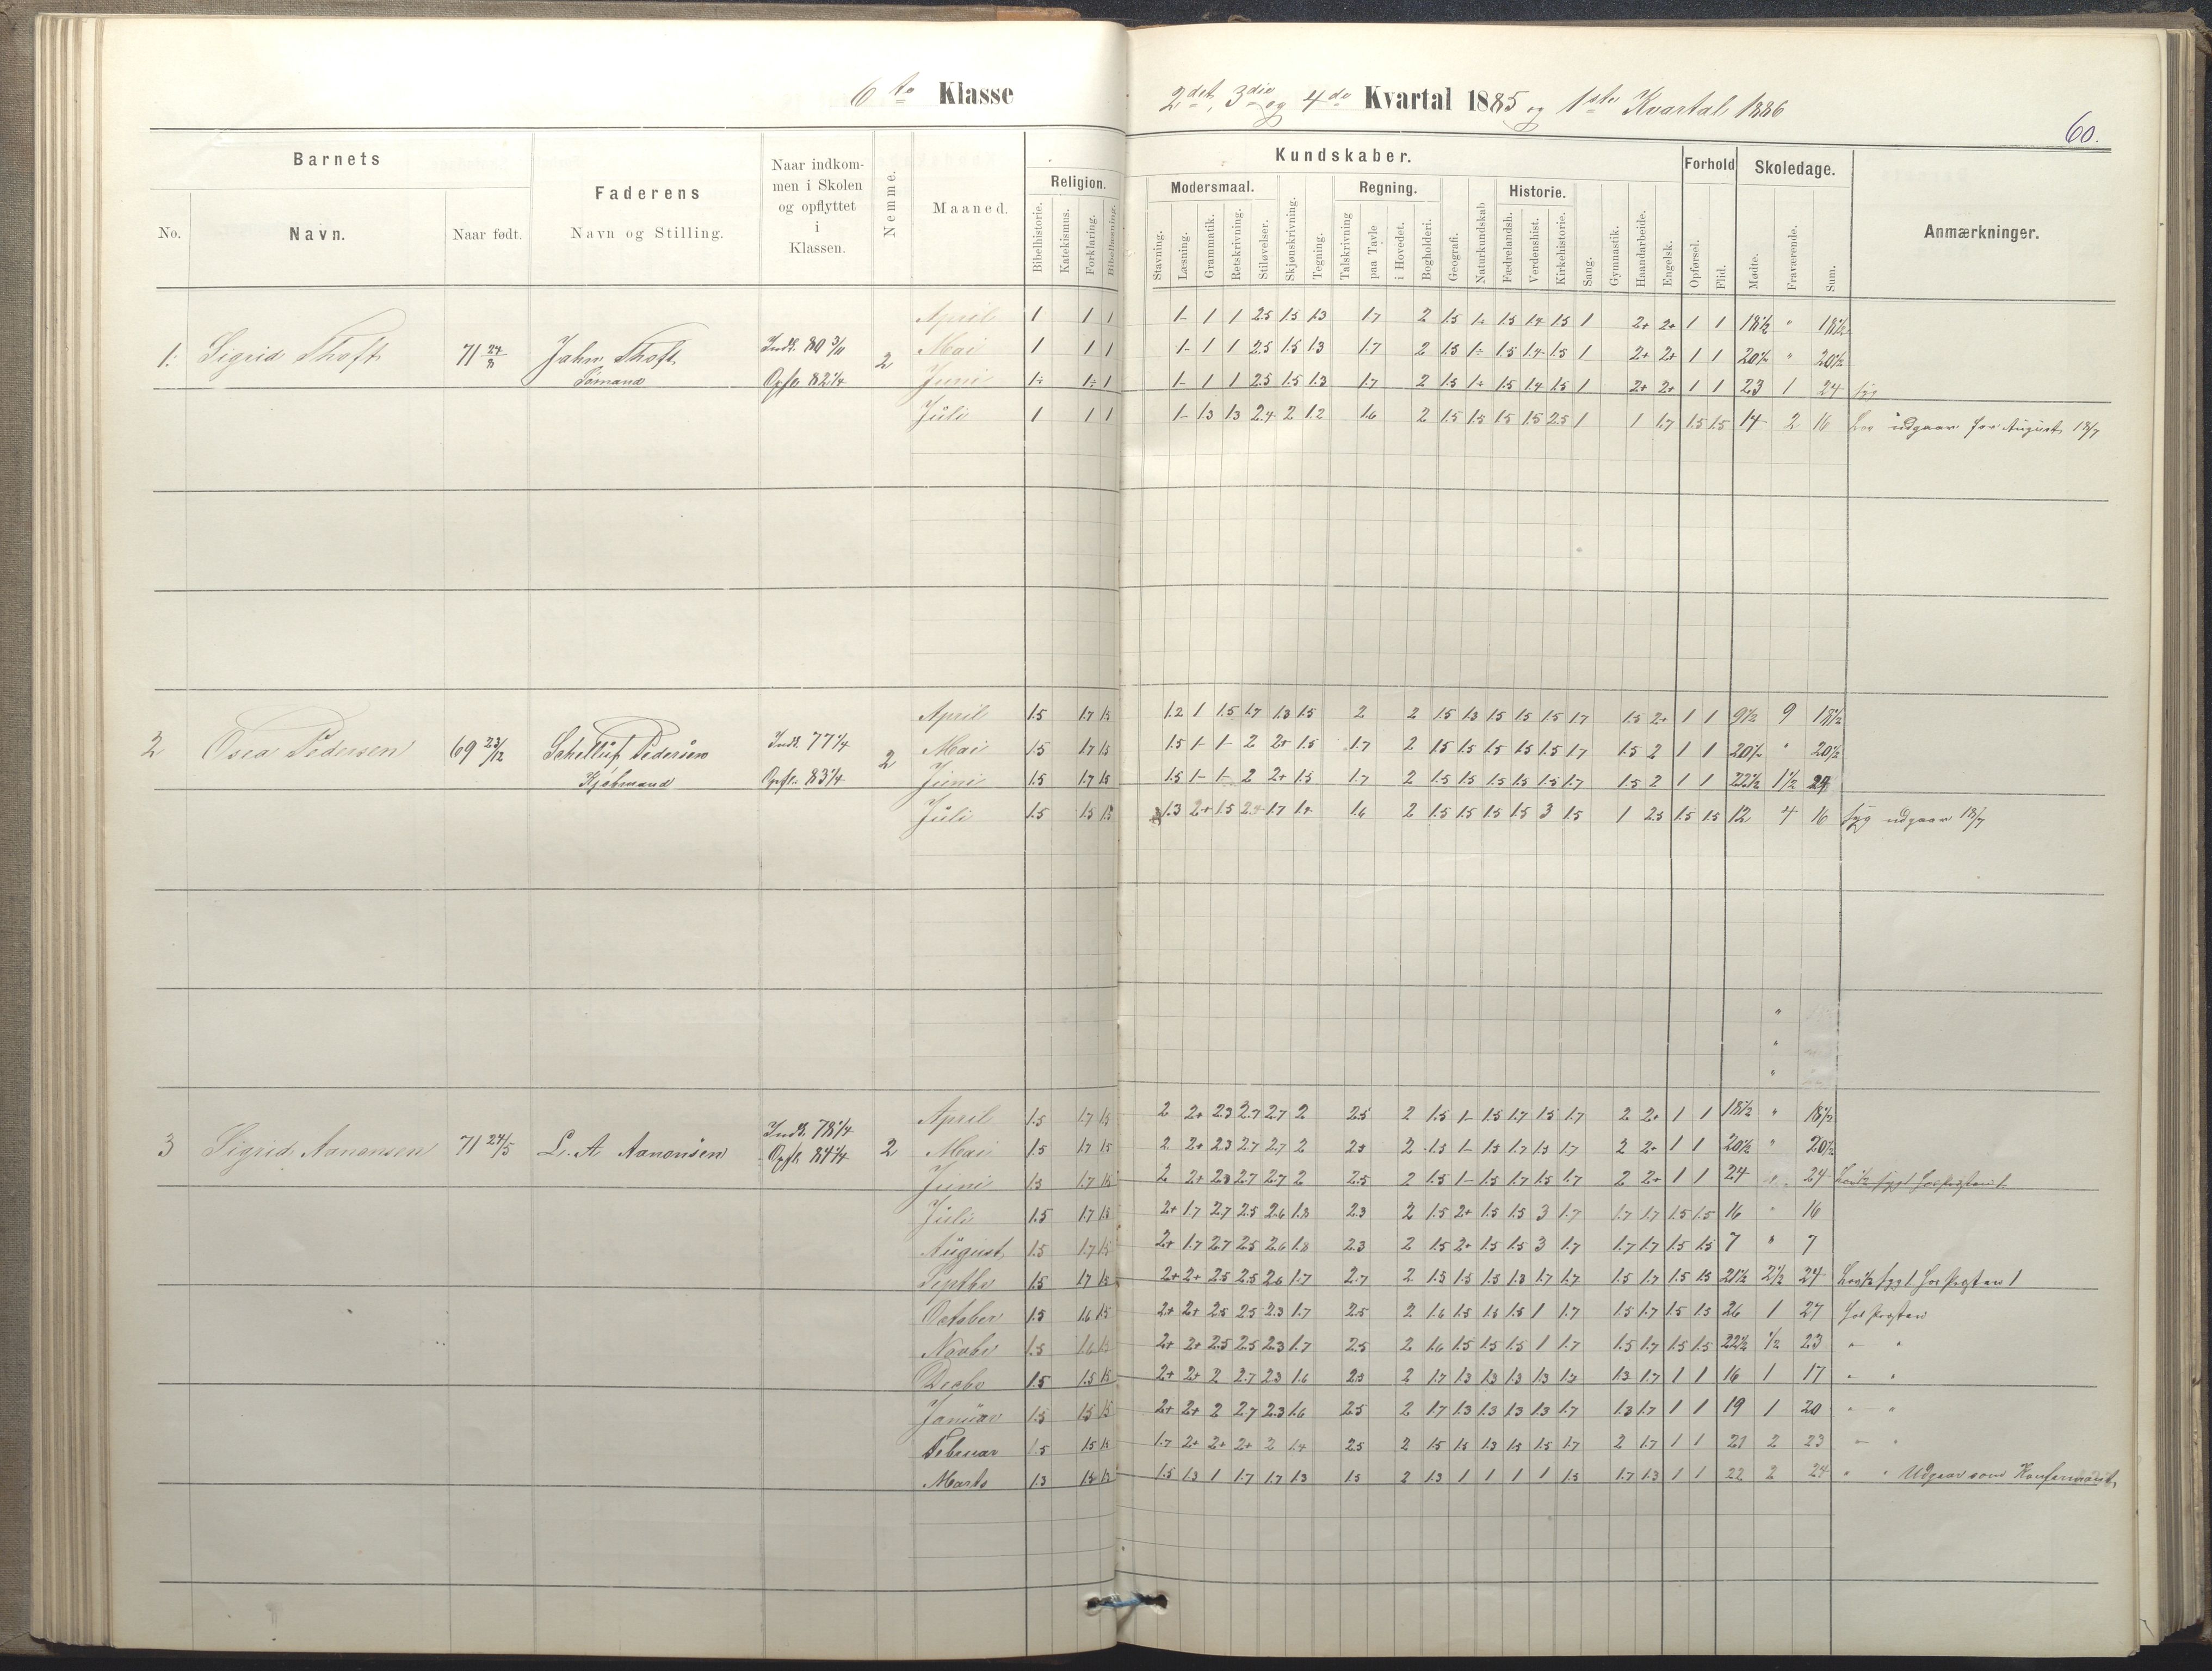 6te Klasse 2det, 3die og 4de Kvartal 1885 og 1ste Kvartal 1886
60.
Barnets
No.
Navn.
Naar født.
Faderens
Navn og Stilling.
Naar indkom-
men i Skolen
og opflyttet
i
Klassen.
Nemme.
Maaned.
Kundskaber.
Religion.
Bibelhistorie.
Katekismus.
Forklaring.
Bibellæsning.
Modersmaal.
Stavning.
Læsning.
Grammatik.
Retskrivning.
Stiløvelser.
Skjønskrivning.
Tegning.
Regning.
Talskrivning
paa Tavle
i Hovedet.
Bogholderi.
Geografi.
Naturkundskab
Historie.
Fædrelandsh.
Verdenshist.
Kirkehistorie.
Sang.
Gymnastik.
Haandarbeide.
Engelsk.
Forhold
Opførsel.
Flid.
Skoledage.
Mødte.
Fraværende.
Sum.
Anmærkninger.
1. Sigrid Thoft 71 Jahn Thoft Sømand Indk. 80 3/11 Opfl. 82 1/4 2
April 1 1 1 1- 1 1 2.5 1.5 1.3 1.7 2 1.5 1÷ 1.5 1.4 1.5 1 2+ 2+ 1 1 18½ " 18½
Mai 1 1 1 1- 1 1 2.5 1.5 1.3 1.7 2 1.5 1÷ 1.5 1.4 1.5 1 2+ 2+ 1 1 20½ " 20½
Juni 1÷ 1÷ 1 1- 1 1 2.5 1.5 1.3 1.7 2 1.5 1÷ 1.5 1.4 1.5 1 2+ 2+ 1 1 23 1 24 syg
Juli 1 1 1 1- 1.3 1.3 2.4 2 1.2 1.6 2 1.5 1.5 1.5 1.5 2.5 1 1 1.7 1.5 1.5 14 2 16 udgaar for August 18/7
2 Osea Pedersen 69 23/12 Pedersen Indk. 77 1/4 Opfl. 83 1/4 2
April 1.5 1.7 1.5 1.2 1 1.5 1.7 1.3 1.5 2 2 1.5 1.3 1.5 1.5 1.5 1.7 1.5 2+ 1 1 9½ 9 18½
Mai 1.5 1.7 1.5 1.5 1- 1- 2 2+ 1.5 1.7 2 1.5 1.5 1.5 1.5 1.5 1.7 1.5 2 1 1 20½ " 20½
Juni 1.5 1.7 1.5 1.5 1- 1- 2 2+ 1.5 1.7 2 1.5 1.5 1.5 1.5 1.5 1.7 1.5 2 1 1 22½ 1½ 24
Juli 1.5 1.5 1.5 1.3 2+ 1.5 2.4 1.7 1.4 1.6 2 1.5 1.5 1.5 1.5 3 1.5 1 2.5 1.5 1.5 12 4 16 syg udgaar 18/7
3 Sigrid Aanonsen 71 24/5 L. A. Aanonsen Indk. 78 1/4 Opfl. 84 1/4 2
April 1.5 1.7 1.5 2 2+ 2.3 2.7 2.7 2 2.5 2 1.5 1- 1.5 1.7 1.5 1.7 2 2+ 1 1 18½ " 18½
Mai 1.5 1.7 1.5 2 2+ 2.3 2.7 2.7 2 2.5 2 1.5 1- 1.5 1.7 1.5 1.7 2 2+ 1 1 20½ " 20½
Juni 1.5 1.7 1.5 2 2+ 2.3 2.7 2.7 2 2.5 2 1.5 1- 1.5 1.7 1.5 1.7 2 2+ 1 1 24 " 24
Juli 1.5 1.7 1.5 2+ 1.7 2.7 2.5 2.6 1.8 2.3 2 1.5 2+ 1.5 1.5 3 1.7 1.7 1.7 1.5 1.5 16 " 16
August 1.5 1.7 1.5 2+ 1.7 2.7 2.5 2.6 1.8 2.3 2 1.5 2+ 1.5 1.5 3 1.7 1.7 1.7 1.5 1.5 7 " 7
Septbr 1.5 1.7 1.5 2+ 2+ 2.5 2.5 2.6 1.7 2.7 2 1.5 1.5 1.5 1.3 1.7 1.7 1.5 1.7 1.5 1.5 21½ 2½ 24 Lov ½ sygd hos Prosten 1
October 1.5 1.6 1.5 2+ 2+ 2.5 2.5 2.3 1.7 2.5 2 1.6 1.5 1.5 1.5 1 1.7 1.5 1.7 1.5 1.5 26 1 27 hos Prosten
Novbr 1.5 1.6 1.5 2+ 2+ 2.5 2.5 2.3 1.7 2.5 2 1.6 1.5 1.5 1.5 1 1.7 1.5 1.7 1.5 1.5 22½ ½ 23 " "
Decbr 1.5 1.5 1.5 2+ 2+ 2 2.7 2.3 1.6 2.5 2 1.7 1.3 1.3 1.3 1.3 1.7 1.3 1.7 1 1 16 1 17 " "
Januar 1.5 1.5 1.5 2+ 2+ 2 2.7 2.3 1.6 2.5 2 1.7 1.3 1.3 1.3 1.3 1.7 1.3 1.7 1 1 19 1 20 " "
Februar 1.5 1.5 1.5 1.7 2+ 2+ 2+ 2 1.4 2.5 2 1.5 1.5 1.3 1.5 1.5 1.7 2 1.7 1 1 21 2 23 " "
Marts 1.3 1.5 1.3 1.5 1.3 1 1.7 1.7 1.3 1.5 2 1.3 1 1 1 1 1.5 1.7 1.3 1 1 22 2 24 " " Udgaar som Konfermand,